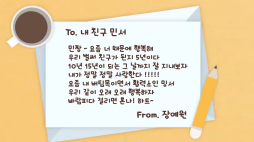 To. 내 친구 민서
민짱 - 요즘 너 때문에 행복해
우리 벌써 친구가 된지 5년이다
10년 15년이 되는 그 날까지 잘 지내보자
내가 정말 정말 사랑한다 !!!!!
요즘 내 베팀목이면서 활력소인 밍서
우리 같이 오래 오래 행복하자
바람피다 걸리면 혼나! 하트~
From. 장예원